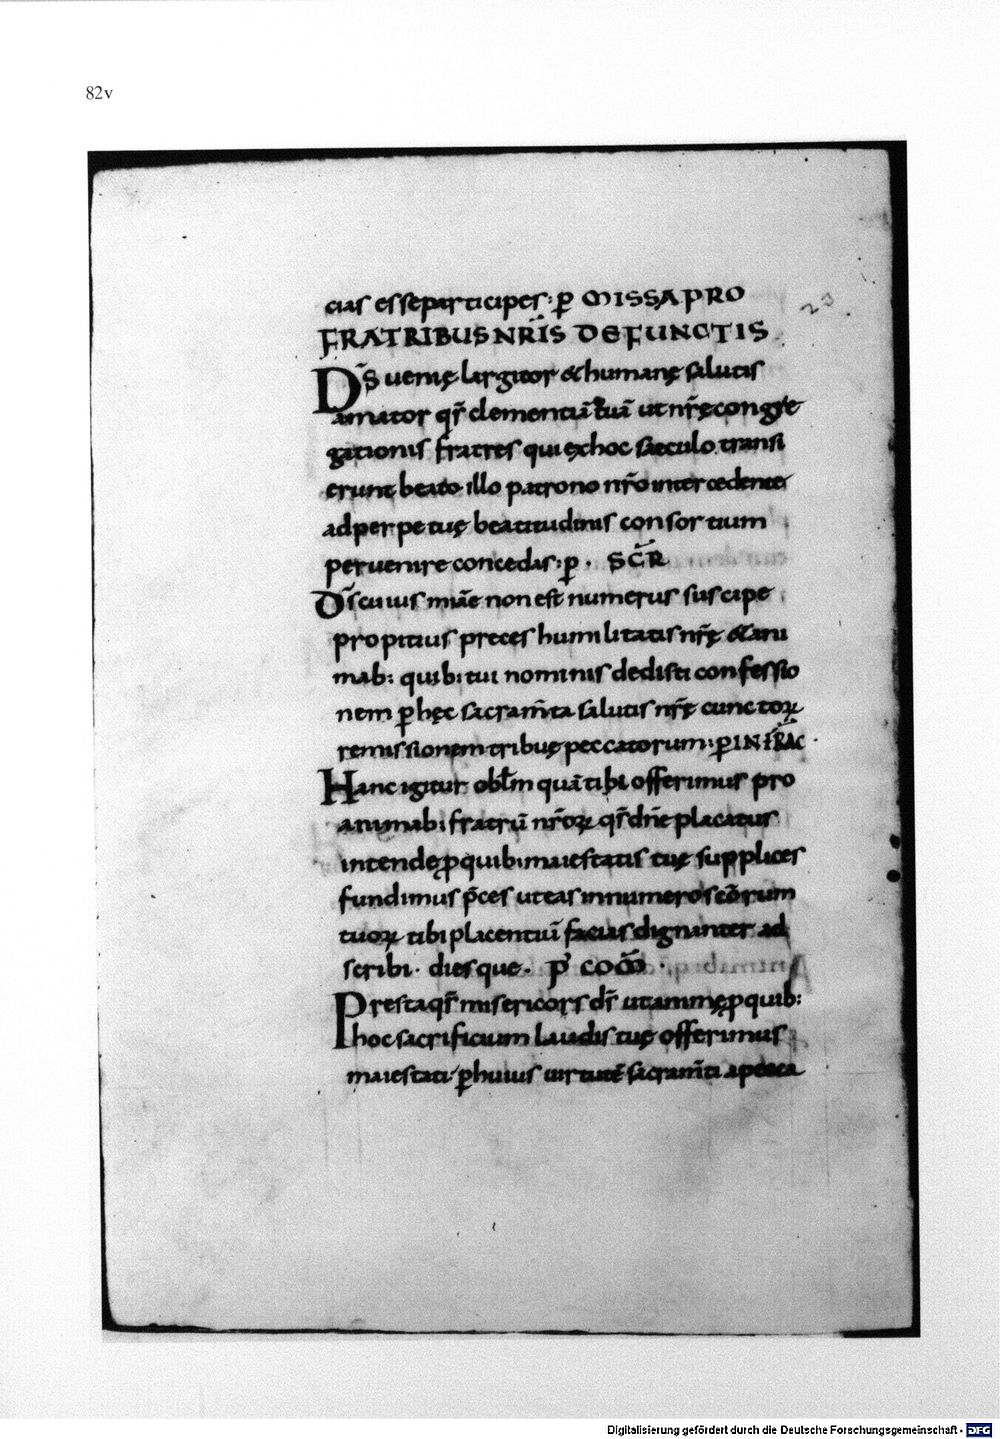 82v
cias esse participes: ꝑ MISSA PRO
FRATRIBUS NR̄IS DEFUNCTIS
D̄S uenię largitor & humanę salutis
amator qs̄ clementiā tuā ut nr̄ę congre
gationis fratres qui ex hoc saeculo transi
erunt beato illo patrono nr̄o intercedente
ad perpetuę beatitudinis consortium
peruenire concedas: ꝑ. SC̄R
D̄s cuius miāe non est numerus suscipe
propitius preces humilitatis nr̄ę & ani
mab: quib: tui nominis dedisti confessio
nem ꝑ hęc sacram̄ta salutis nr̄ę cunctoꝝ
remissionem tribuę peccatorum: ꝑ INFRAC
Hanc igitur obl̄m quā tibi offerimus pro
animab: fratrū nr̄oꝝ qs̄ dn̄e placatus
intende ꝓ quib: maiestatis tuę supplices
fundimus p̄ces ut eas in numero sc̄orum
tuoꝝ tibi placentiū facias dignanter ad
scribi. diesque. P' COM̄
Presta qs̄ misericors ds̄ ut animę ꝓ quib:
hoc sacrificium laudis tuę offerimus
maiestati ꝑ huius uirtutē sacram̄ti a pecca
Digitalisierung gefördert durch die Deutsche Forschungsgemeinschaft - DFG